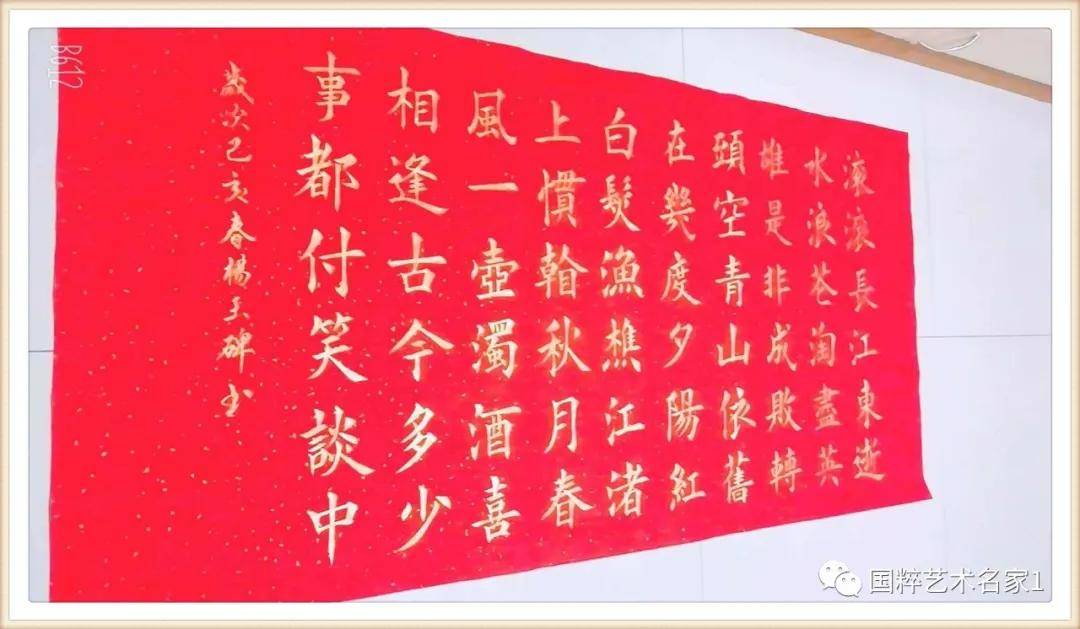 滚滚長江東逝
水浪花淘盡英
雄是非成敗轉
頭空青山依舊
在幾度夕陽紅
白髮漁樵江渚
上慣翰秋月春
風一壺濁酒喜
相逢古今多少
事都付笑談中
歲次己亥春楊玉碑书
B612
国粹艺术名家1